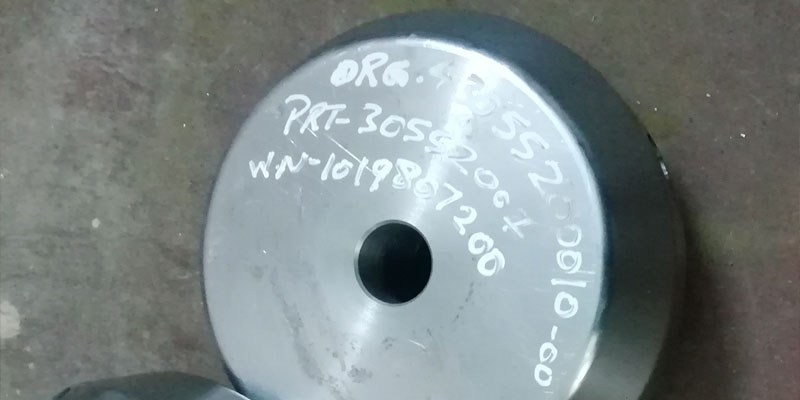 ORG.4305520010-00
PRT-30552007
WN-1019807200